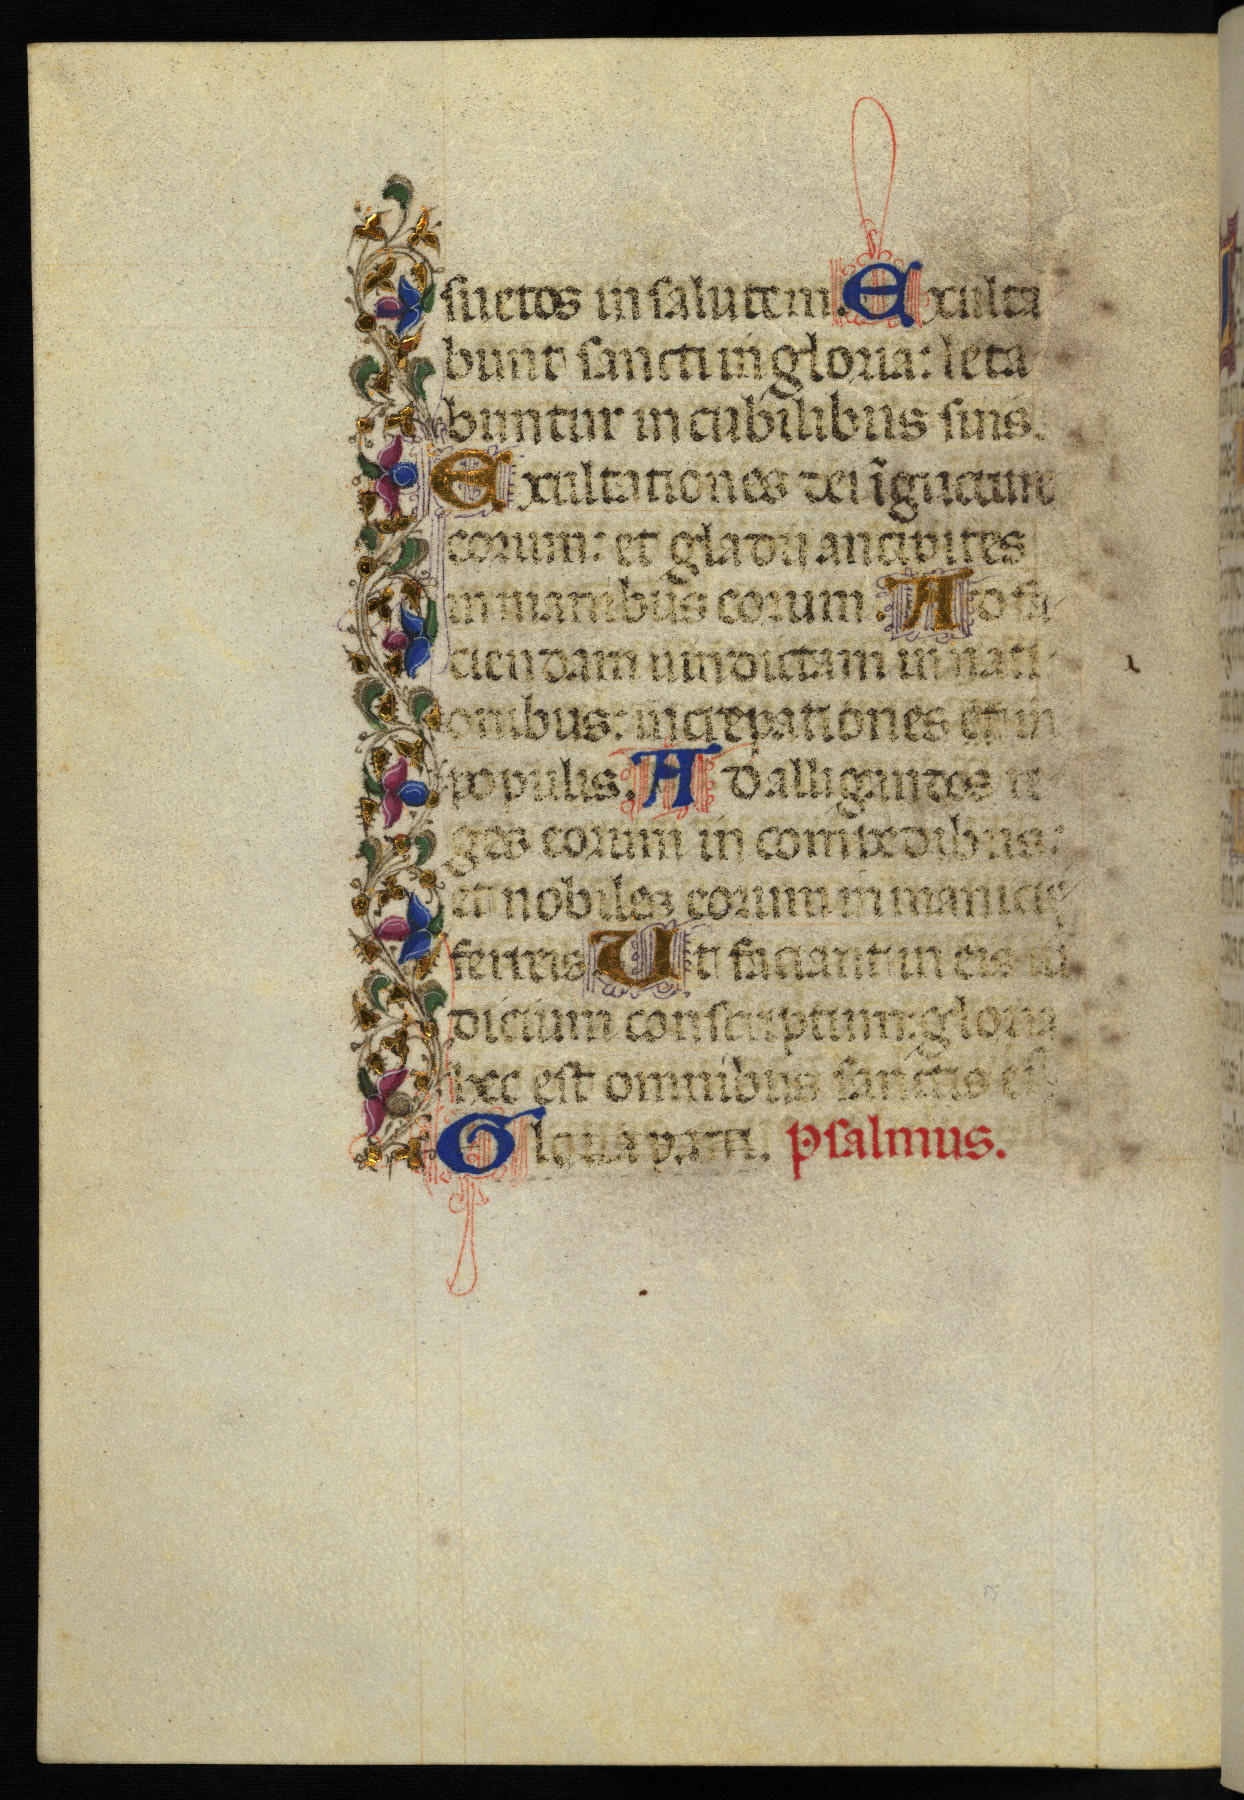 suetos in salutem. Exulta
bunt sancti in gloria: leta
buntur in cubilibus suis.
Exultationes dei ī gutture
eorum: et gladij ancipites
in manibus eorum. Ad fa
ciendam uindictam in nati
onibus: increpationes et in
populis. Ad alligandos re
ges eorum in compedibus:
et nobiles eorum in manicis
ferreis Ut faciant in eis iu
dicium conscriptum: gloria
hec est omnibus sanctis eis
Gloria patri. Psalmus.